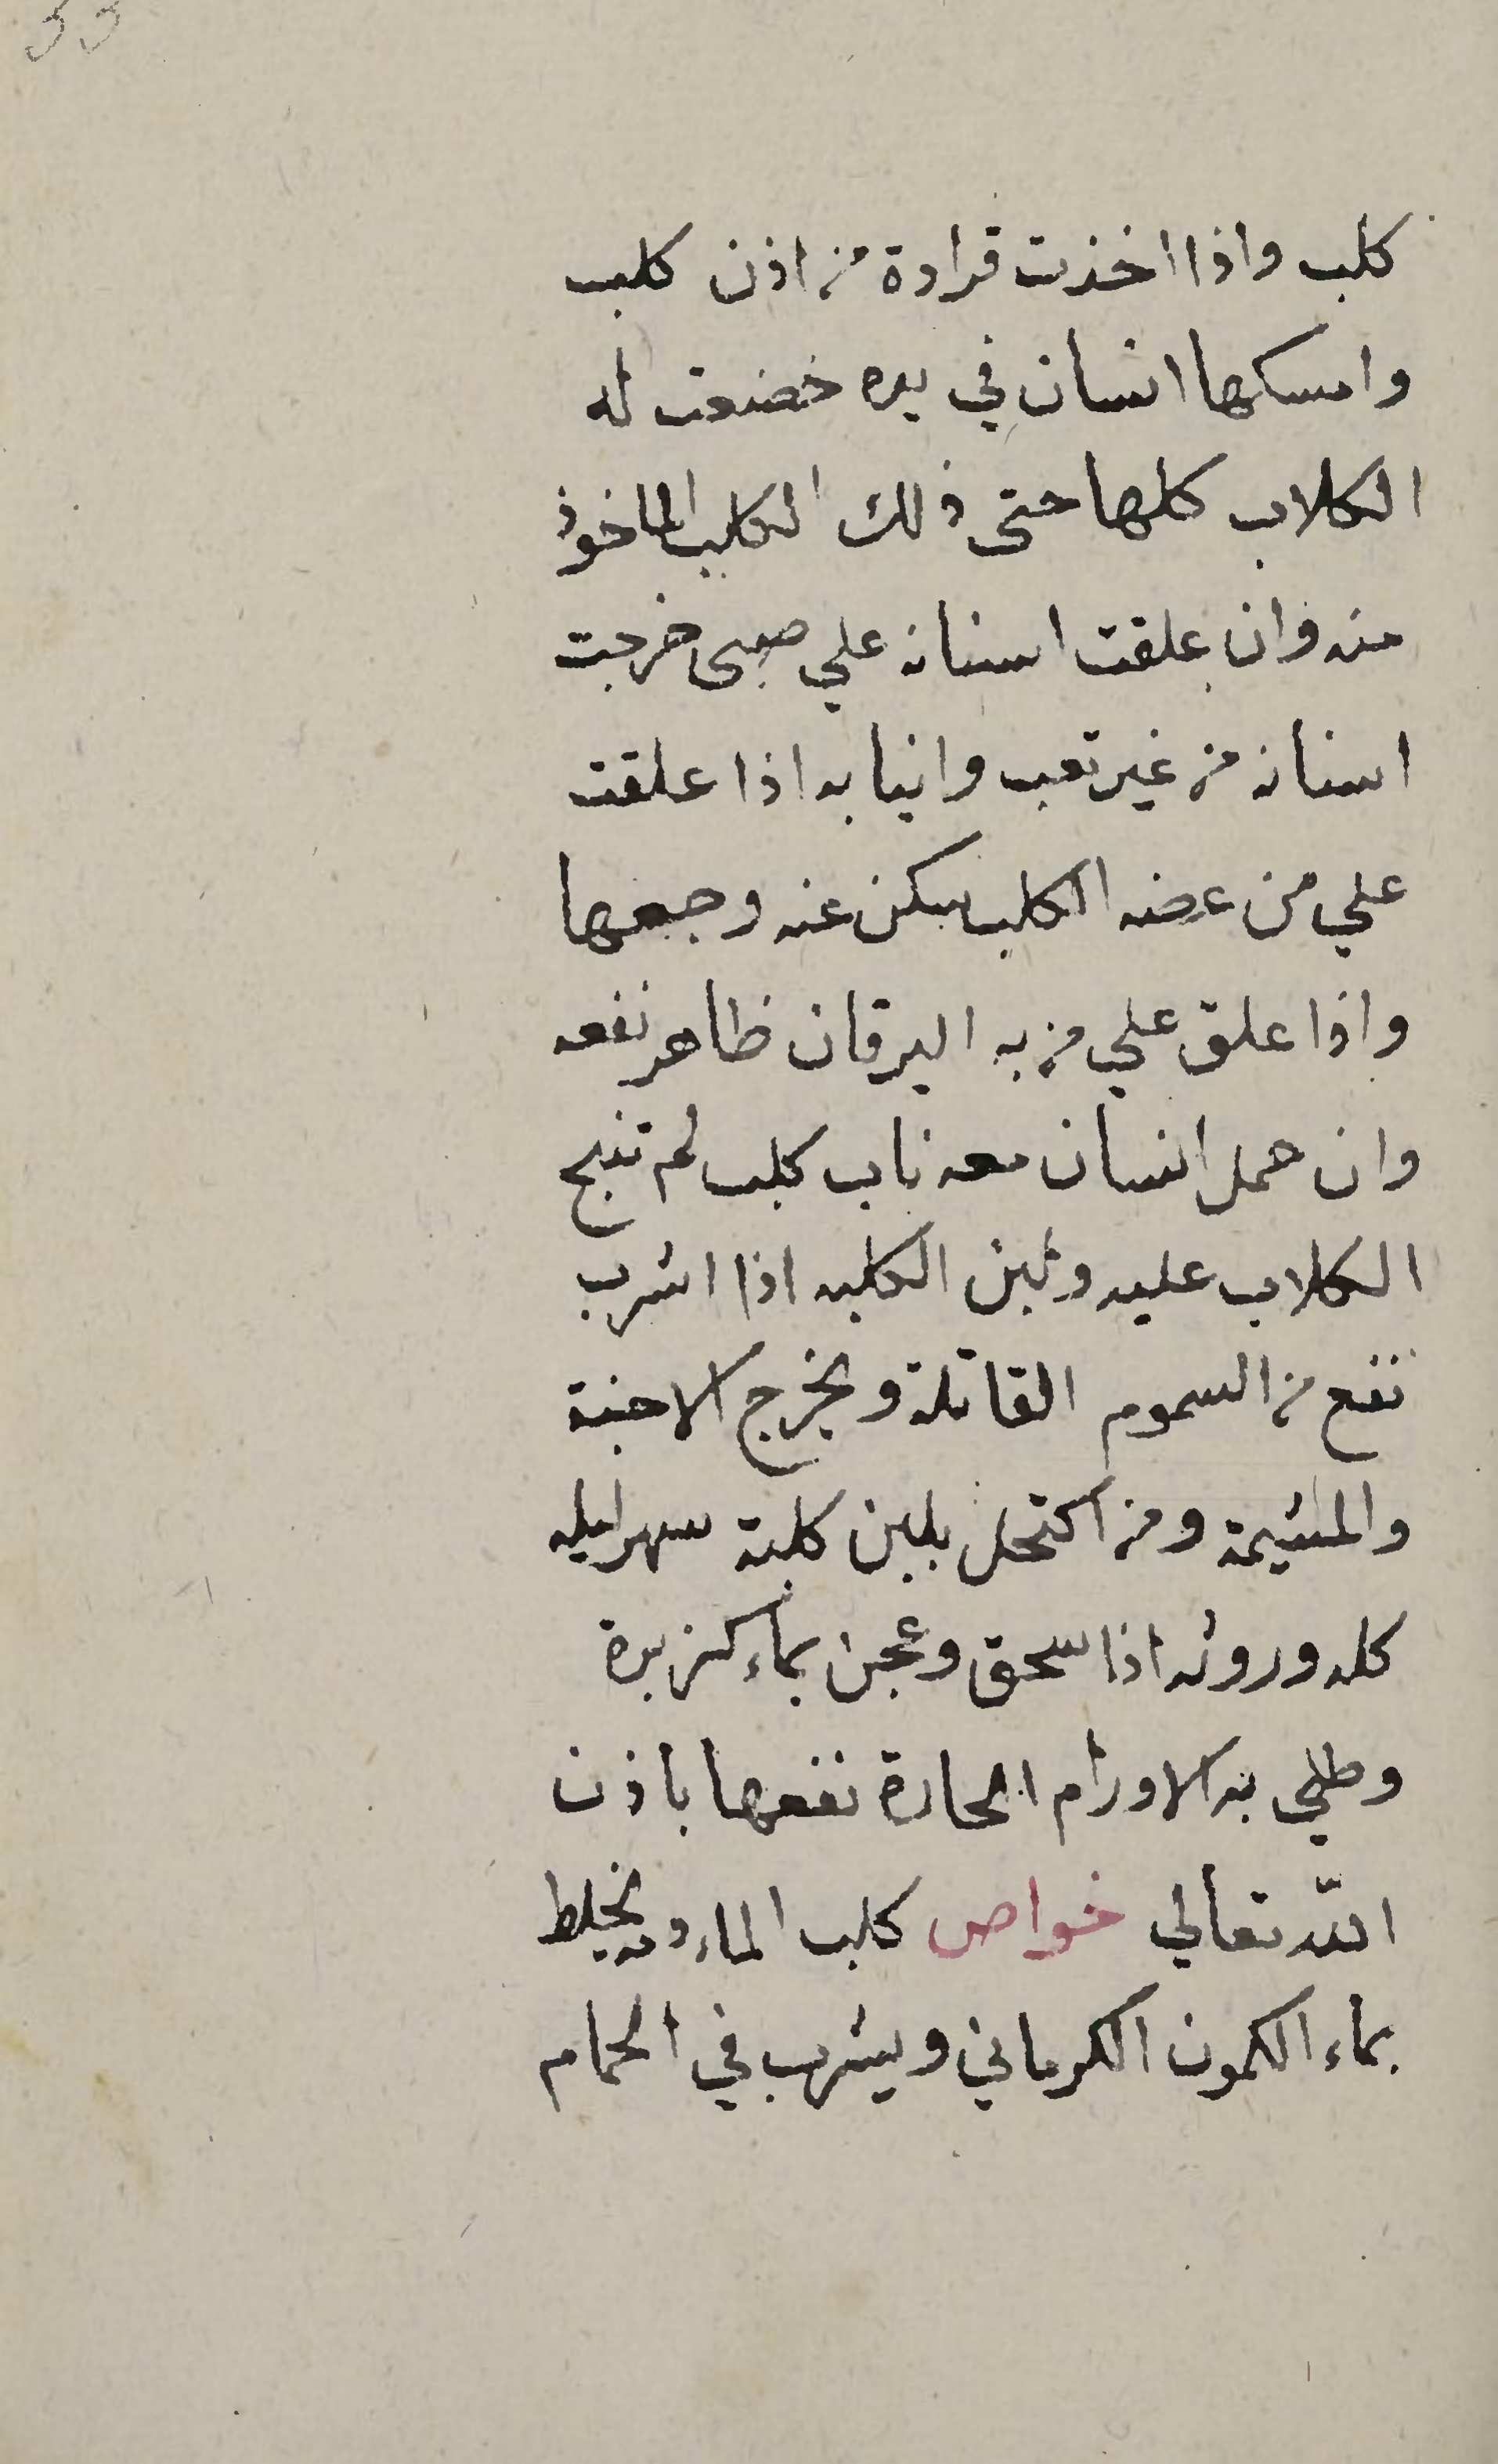 كلب واذا اخذت قرادة من اذن كلب
وامسكها انسان في يده خضعت له
الكلاب كلها حتى ذلك الكلب الماخوذ
منه وان علقت اسنانه علي صبى خرجت
اسنانه من غير تعب وانيابه اذا علقت
علي من عضه الكلب سكن عنه وجعها
واذا علق علي من به اليرقان ظاهر نفعه
وان حمل انسان معه ناب كلب لم تنبح
الكلاب عليه ولبن الكلبه اذا اشرب
نفع من السموم القاتلة ويخرج الاجنة
والمشيمة ومن اكتحل بلبن كلبة سهر ليله
كله وروثه اذا سحق وعجن بماء كزبرة
وطلي به الاورام الحارة نفعها باذن
الله تعالي خواص كلب الماء دمه يخلط
بماء الكمون الكرماني ويشرب في الحمام